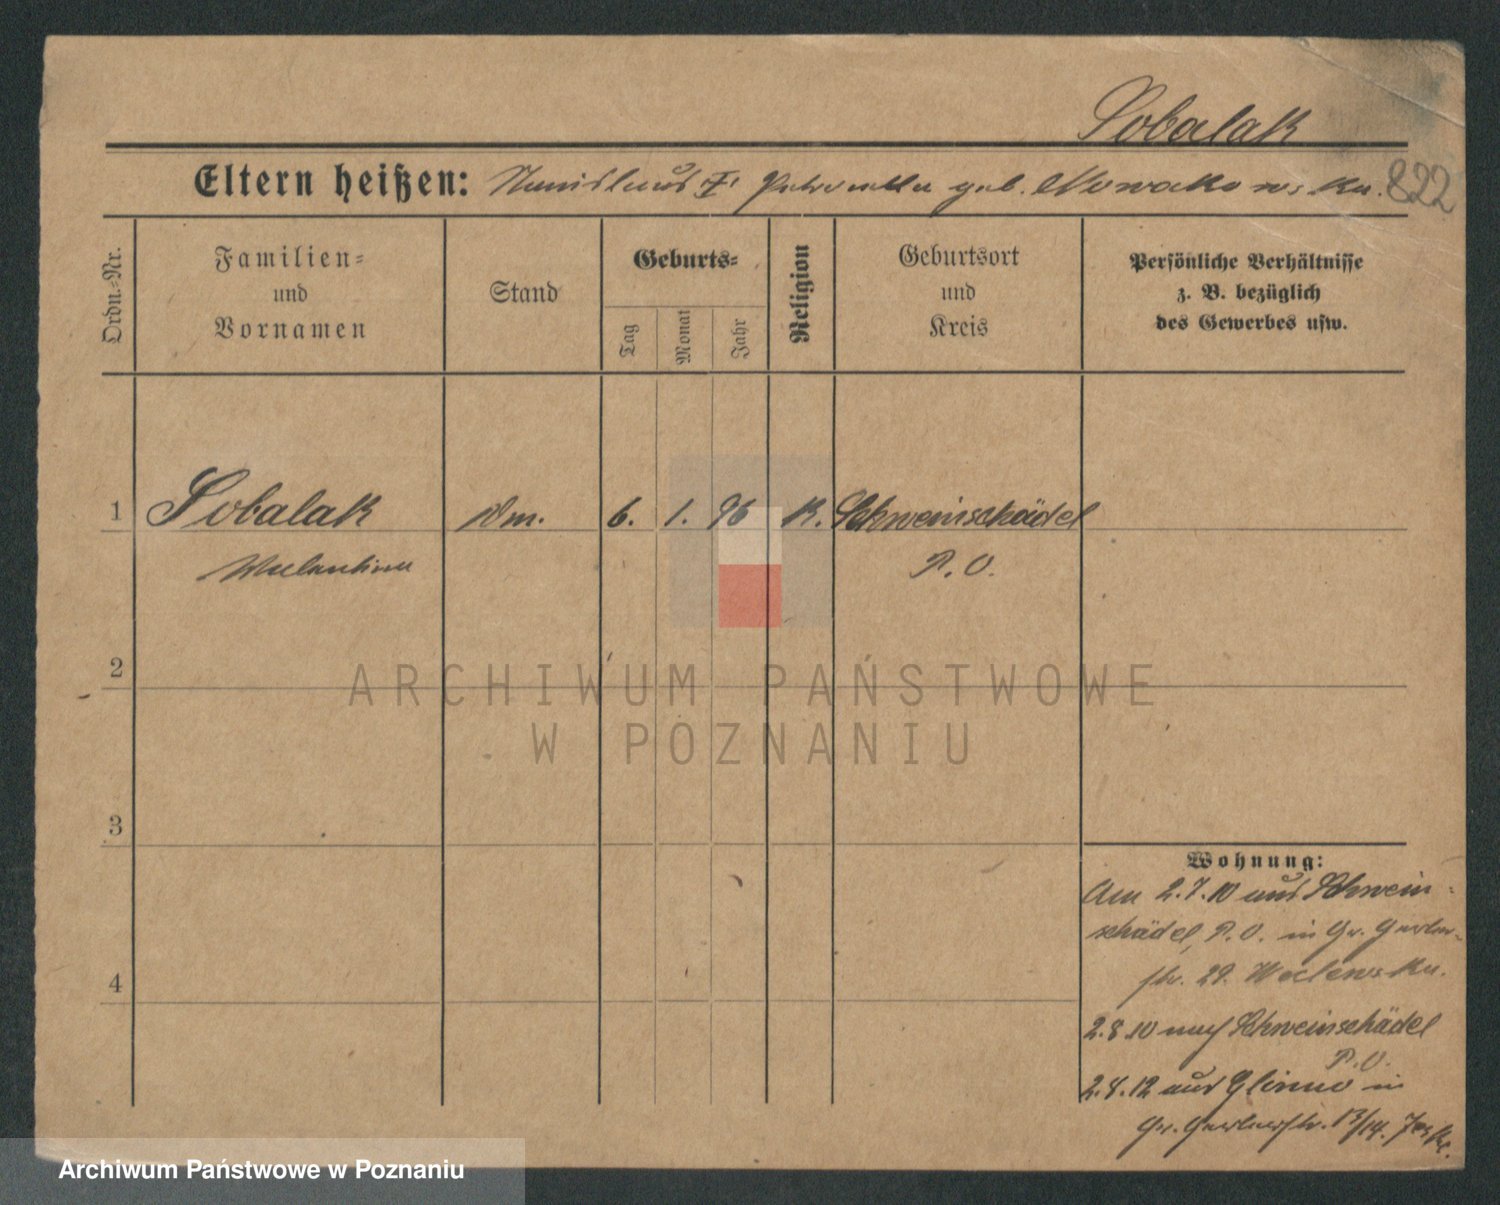 Sobalak
Eltern heißen: Stanislaus & Petronella geb. Nowakowska.
822
Ordn.-Nr.
Familien-
und
Vornamen
Stand
Geburts-
Tag
Monat
Jahr
Religion
Geburtsort
und
Kreis
Persönliche Verhältnisse
z. B. bezüglich
des Gewerbes usw.
1 Sobalak 6. 1. 96 K. Schweinschädel
Walentina P. O.
2
3
4
Wohnung:
Am 2.7.10 aus Schwein-
schädel, P. O. in Gr. Gerber-
str. 29.
2.8.10 nach Schweinschädel
P. O.
2.8.12 aus Glinno in
Gr. Gerberstr. 13/14.
ARCHIWUM PAŃSTWOWE
W POZNANIU
Archiwum Państwowe w Poznaniu